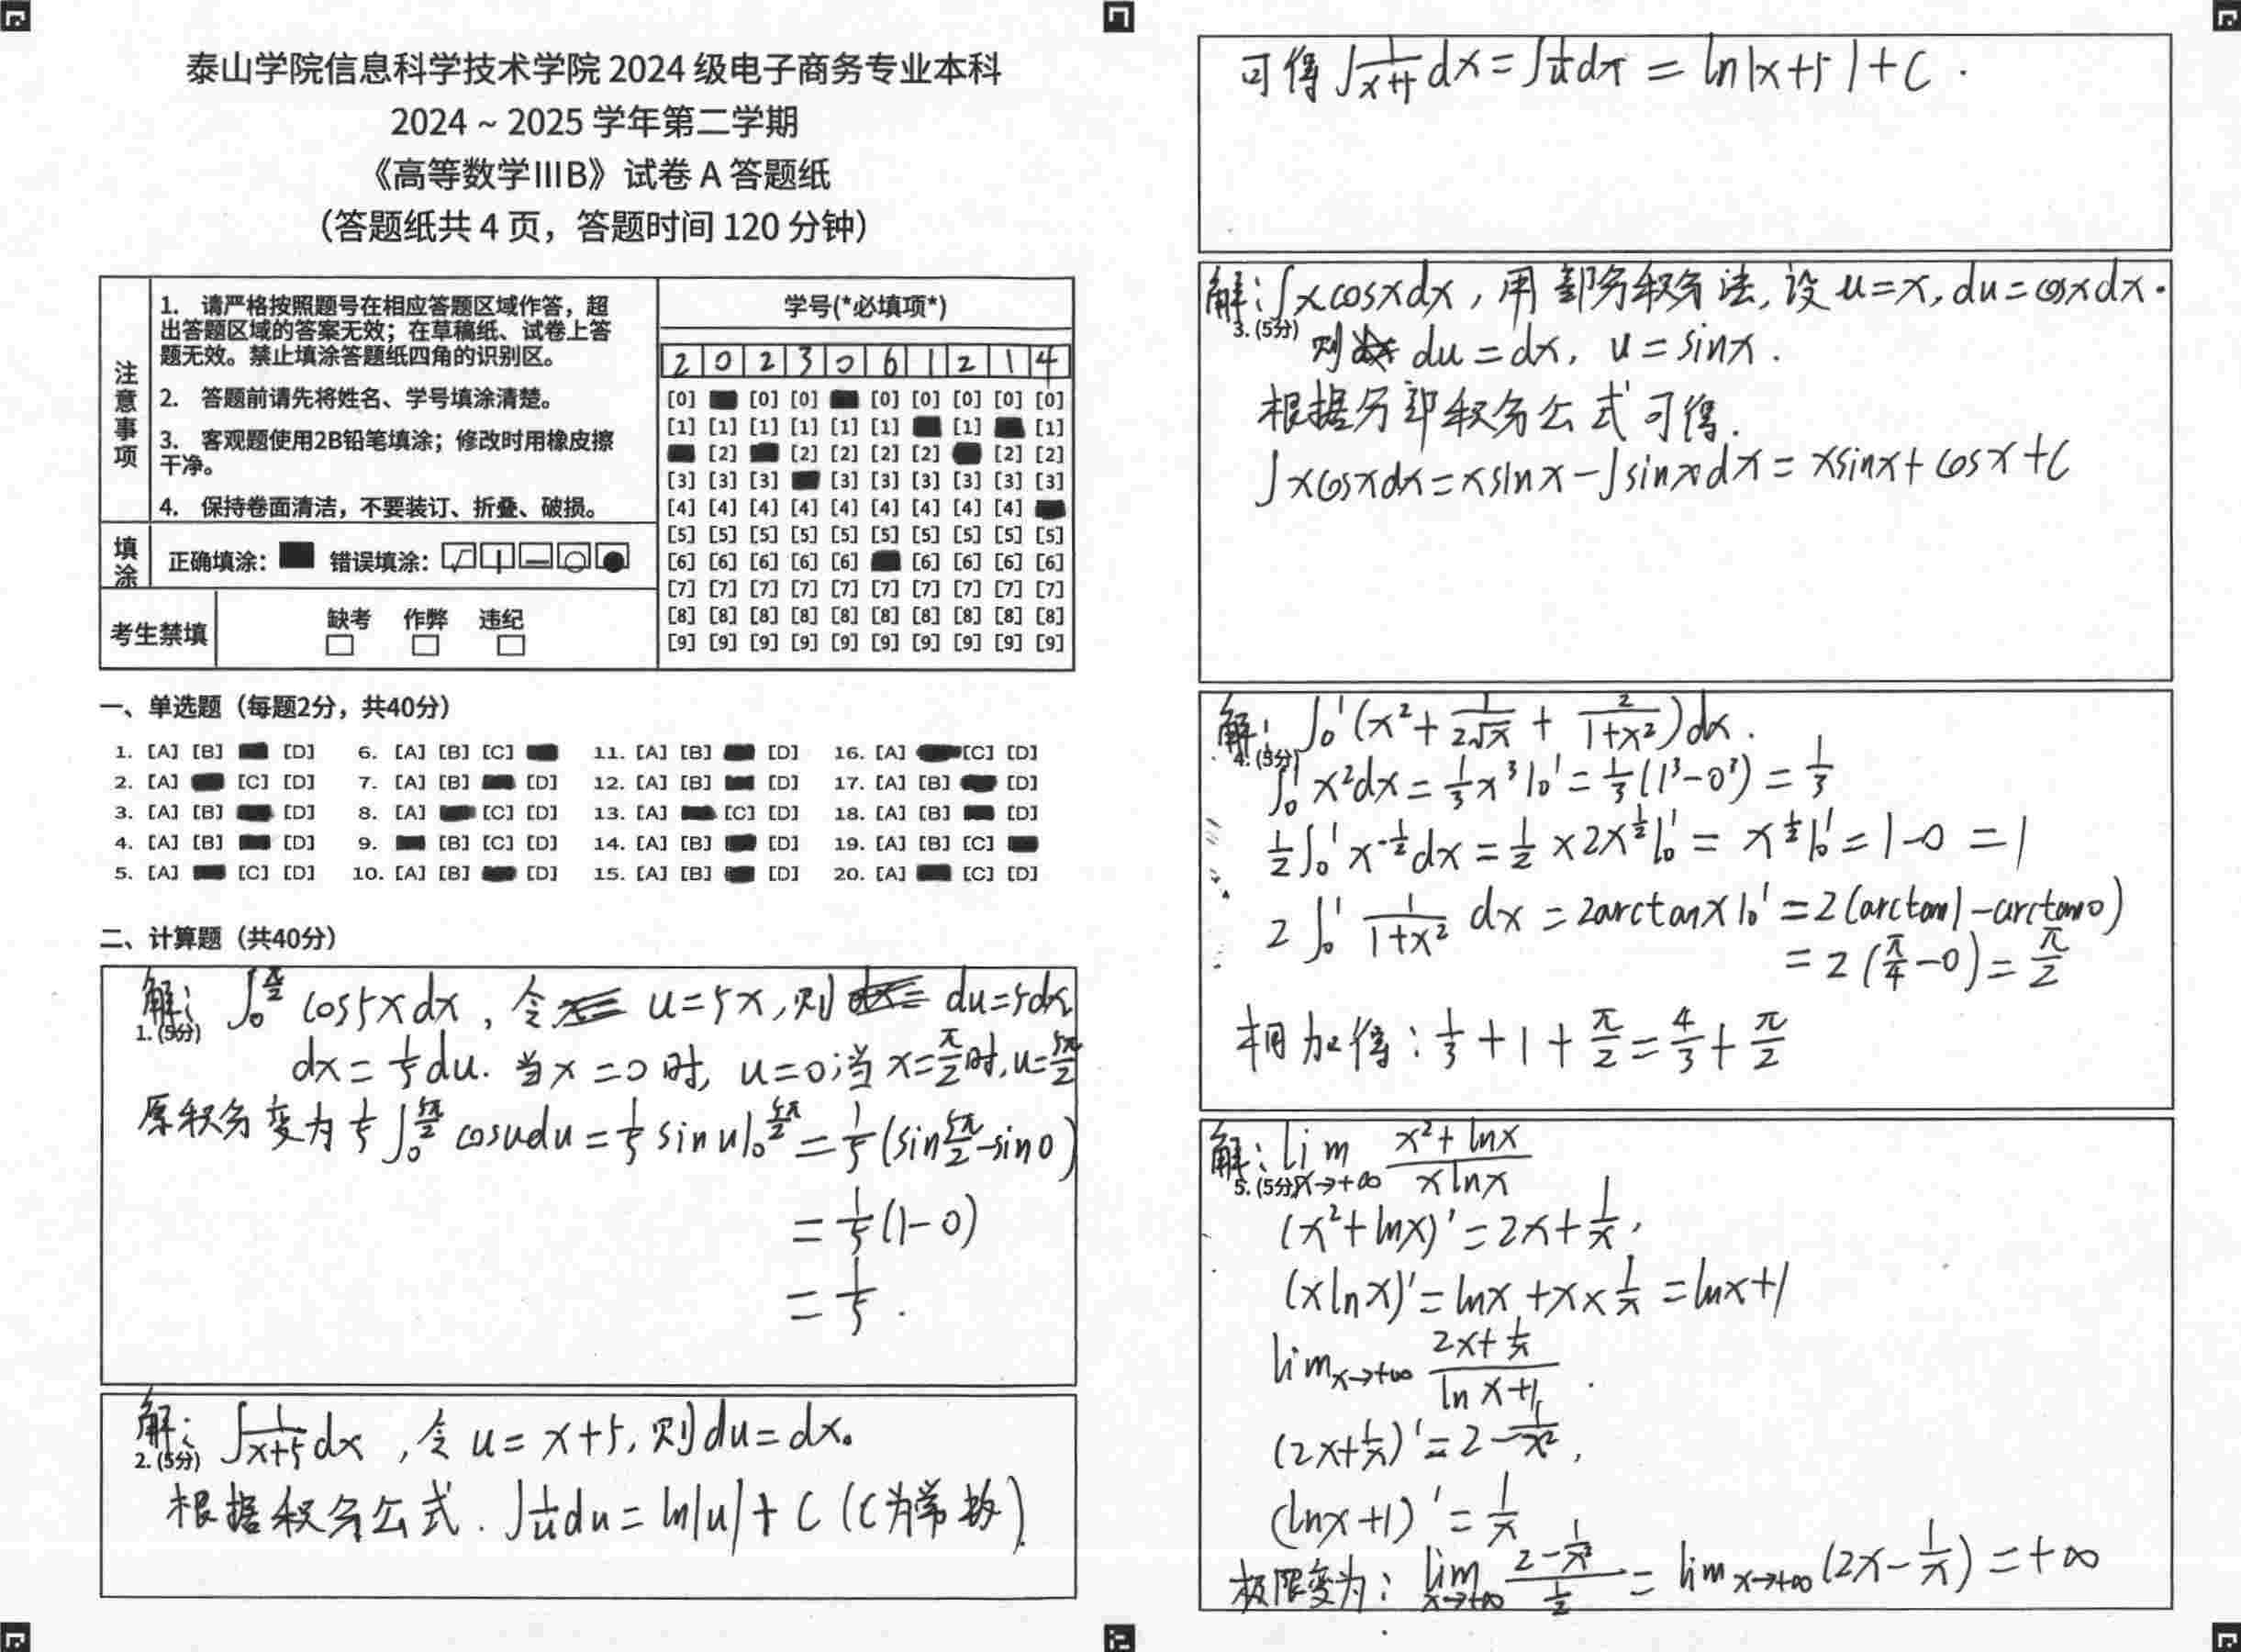 泰山学院信息科学技术学院 2024 级电子商务专业本科
2024 ~ 2025 学年第二学期
《高等数学IIIB》试卷 A 答题纸
（答题纸共 4 页，答题时间 120 分钟）
注意事项
1. 请严格按照题号在相应答题区域作答，超
出答题区域的答案无效；在草稿纸、试卷上答
题无效。禁止填涂答题纸四角的识别区。
2. 答题前请先将姓名、学号填涂清楚。
3. 客观题使用2B铅笔填涂；修改时用橡皮擦
干净。
4. 保持卷面清洁，不要装订、折叠、破损。
填涂
正确填涂： 错误填涂：
考生禁填
缺考 作弊 违纪
学号(*必填项*)
2 0 2 3 0 6 1 2 1 4
[0] [0] [0] [0] [0] [0] [0] [0]
[1] [1] [1] [1] [1] [1] [1] [1]
[2] [2] [2] [2] [2] [2] [2]
[3] [3] [3] [3] [3] [3] [3] [3] [3]
[4] [4] [4] [4] [4] [4] [4] [4] [4]
[5] [5] [5] [5] [5] [5] [5] [5] [5] [5]
[6] [6] [6] [6] [6] [6] [6] [6] [6]
[7] [7] [7] [7] [7] [7] [7] [7] [7] [7]
[8] [8] [8] [8] [8] [8] [8] [8] [8] [8]
[9] [9] [9] [9] [9] [9] [9] [9] [9] [9]
一、单选题（每题2分，共40分）
1. [A] [B] [D] 6. [A] [B] [C] 11. [A] [B] [D] 16. [A] [C] [D]
2. [A] [C] [D] 7. [A] [B] [D] 12. [A] [B] [D] 17. [A] [B] [D]
3. [A] [B] [D] 8. [A] [C] [D] 13. [A] [C] [D] 18. [A] [B] [D]
4. [A] [B] [D] 9. [B] [C] [D] 14. [A] [B] [D] 19. [A] [B] [C]
5. [A] [C] [D] 10. [A] [B] [D] 15. [A] [B] [D] 20. [A] [C] [D]
二、计算题（共40分）
1. (5分)
解： ∫₀^(π/2) cos5xdx , 令 u=5x, 则 du=5dx
dx = 1/5 du. 当 x=0 时, u=0; 当 x=π/2 时, u=5π/2
原积分变为 1/5 ∫₀^(5π/2) cosudu = 1/5 sin u|₀^(5π/2) = 1/5 (sin 5π/2 - sin0)
= 1/5 (1-0)
= 1/5 .
2. (5分)
解： ∫ 1/(x+5) dx , 令 u = x+5, 则 du = dx。
根据积分公式. ∫ 1/u du = ln|u| + C (C为常数).
可得 ∫ 1/(x+5) dx = ∫ 1/u dx = ln|x+5| + C .
3. (5分)
解： ∫xcosxdx , 用部分积分法, 设 u=x, du=cosxdx.
则 du = dx, u = sinx .
根据分部积分公式可得.
∫xcosxdx = xsinx - ∫sinxdx = xsinx + cosx + C
4. (5分)
解： ∫₀¹ (x² + 1/(2√x) + 2/(1+x²))dx .
∫₀¹ x²dx = 1/3 x³|₀¹ = 1/3 (1³-0³) = 1/3
1/2 ∫₀¹ x^(-1/2) dx = 1/2 × 2x^(1/2)|₀¹ = x^(1/2)|₀¹ = 1-0 = 1
2∫₀¹ 1/(1+x²) dx = 2arctanx|₀¹ = 2(arctan1 - arctan0)
= 2(π/4 - 0) = π/2
相加得: 1/3 + 1 + π/2 = 4/3 + π/2
5. (5分)
解： lim x→+∞ (x²+lnx)/(xlnx)
(x²+lnx)' = 2x + 1/x ,
(xlnx)' = lnx + x × 1/x = lnx+1
lim x→+∞ (2x+1/x)/(lnx+1) .
(2x+1/x)' = 2 - 1/x² ,
(lnx+1)' = 1/x
极限变为: lim x→+∞ (2-1/x²)/(1/2) = lim x→+∞ (2x - 1/x) = +∞